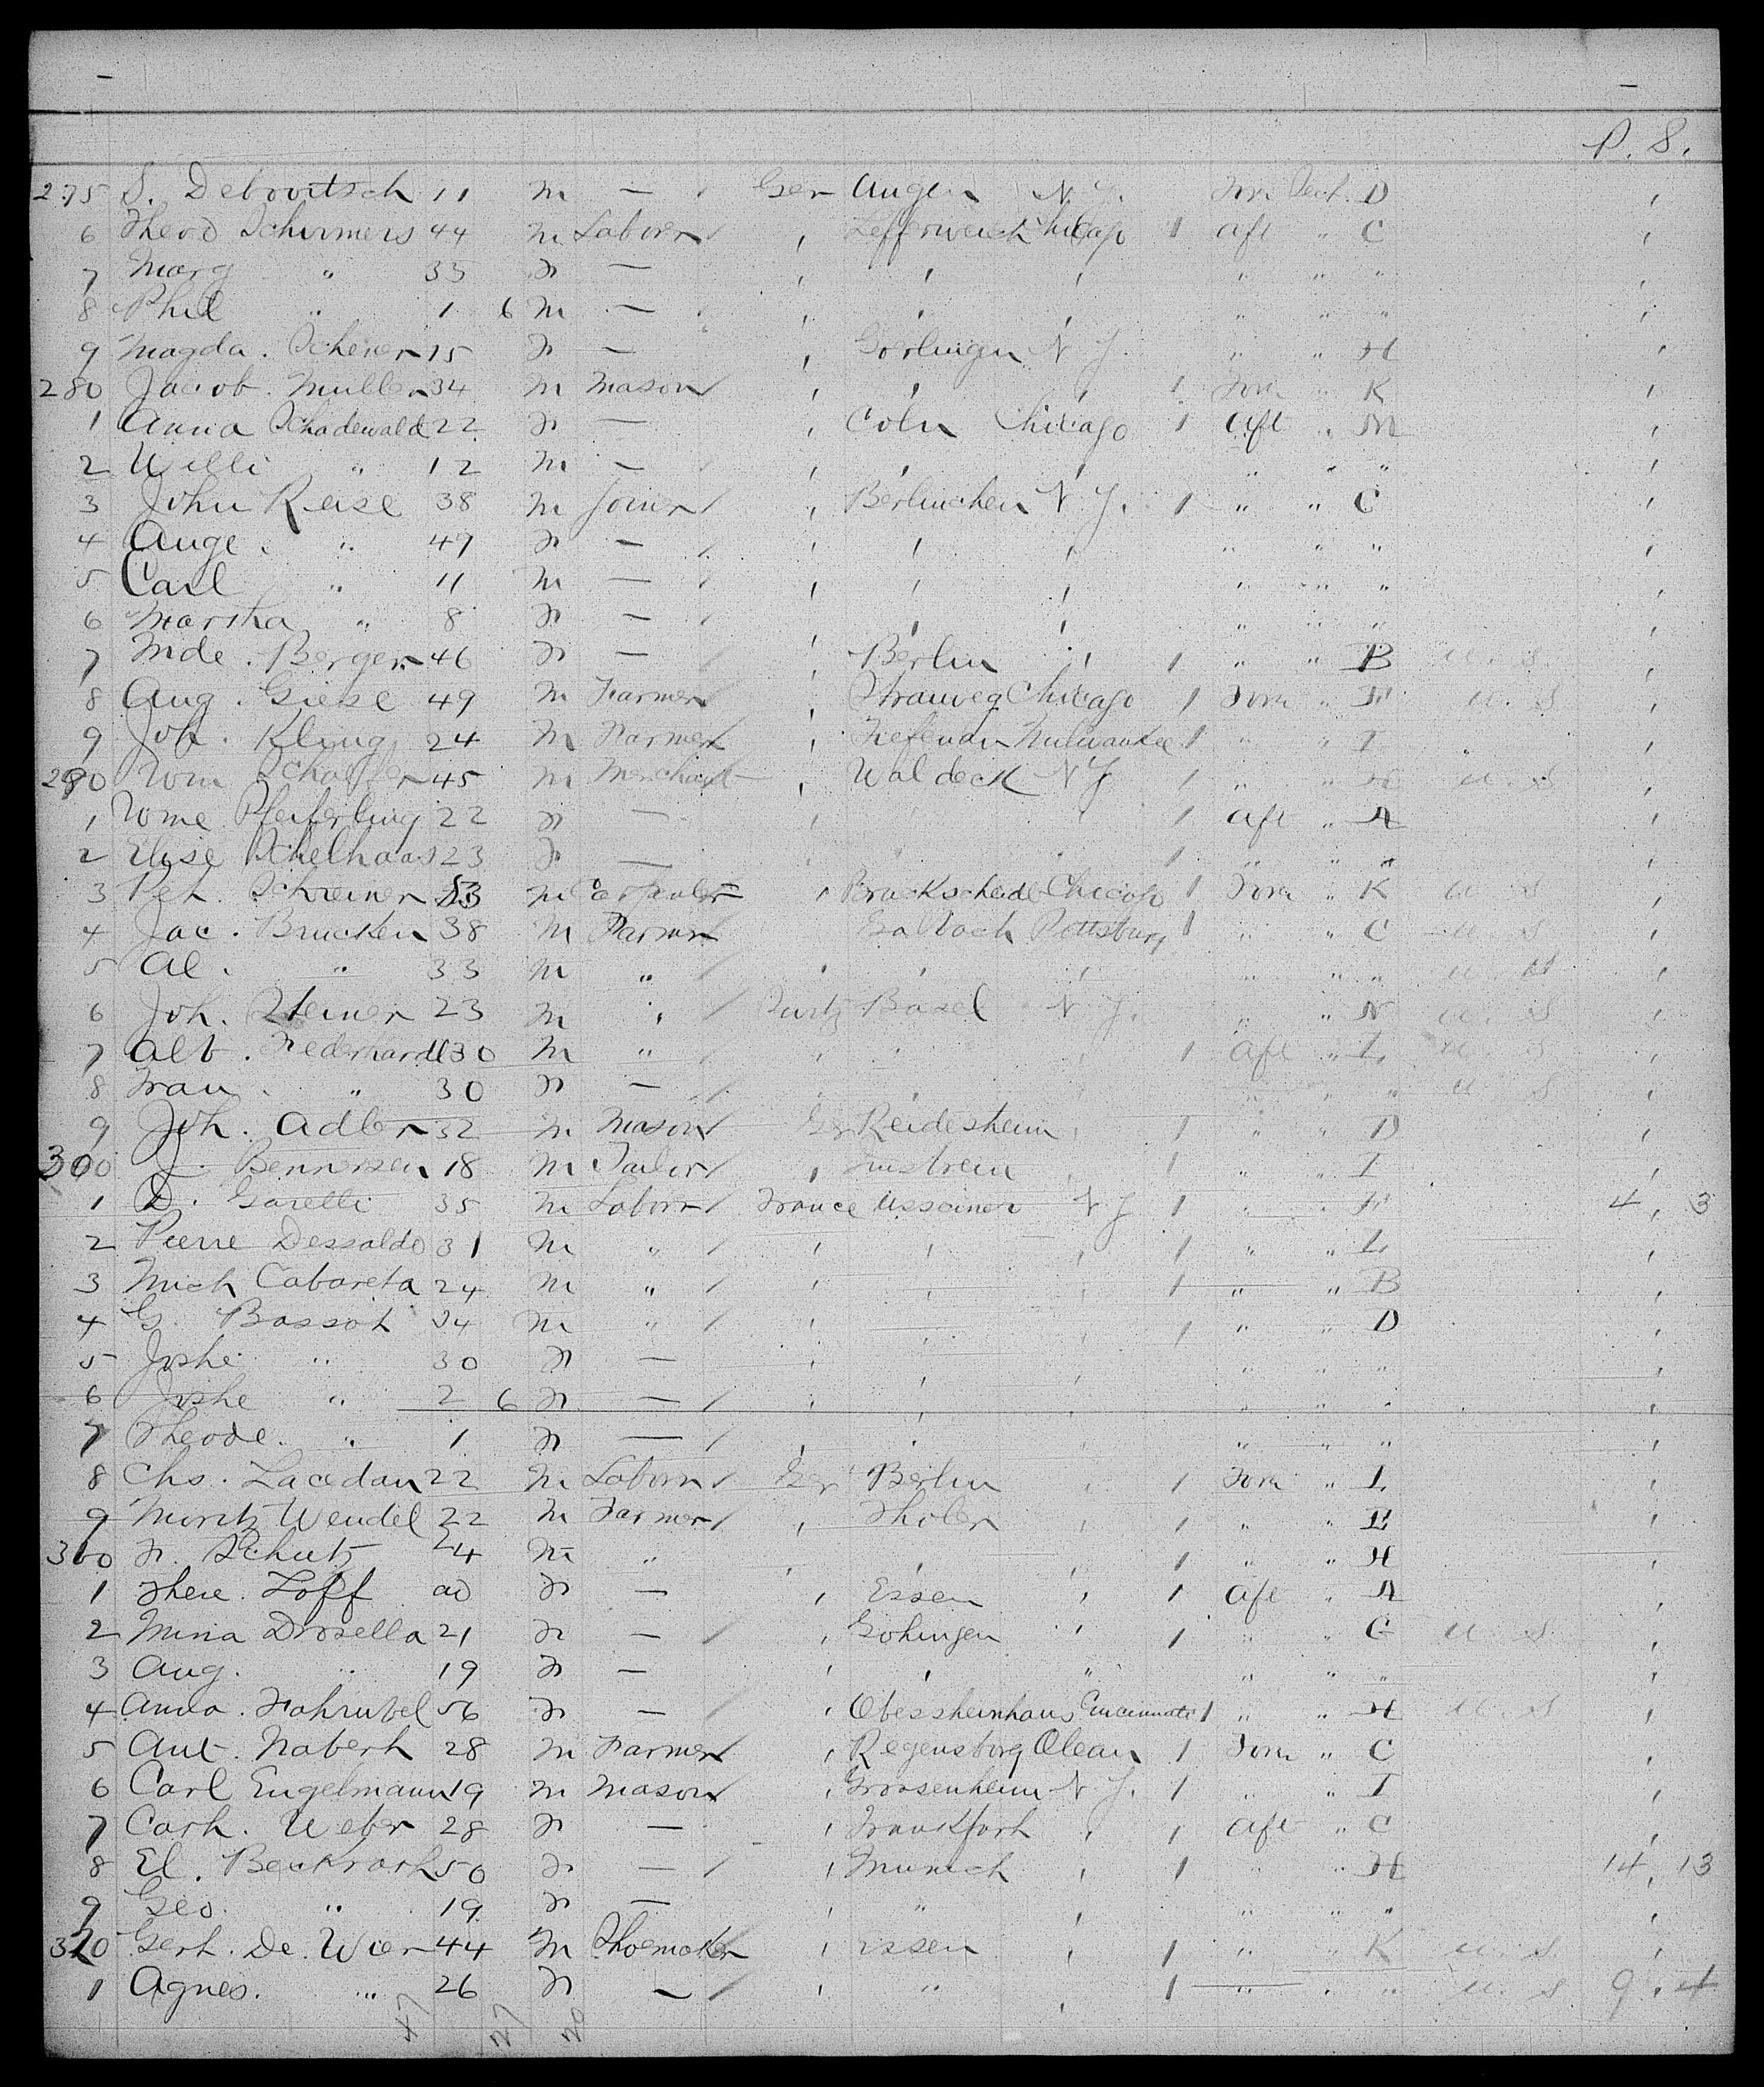 P. S.
275 S. Debrovitsch 11 m — Ger Augen N. Y. Forw Deck. D
6 Theod Schirmers 44 m Laborer ' Chicago 1 aft " C
7 Marg " 35 f — ' ' ' " " "
8 Phil " 1 6 m — ' ' ' " " "
9 Magda. Scherer 15 f — ' Gerlingen N. Y. " " H
280 Jacob. Muller 34 m Mason ' ' ' 1 Forw " K
1 Anna Schadewald 22 f — ' Coln Chicago 1 aft " M
2 Willi " 12 m — ' ' ' " " "
3 John Reise 38 m Joiner ' Berlinchen N. Y. 1 " " C
4 Auge. " 49 f — ' ' ' " " "
5 Carl " 11 m — ' ' ' " " "
6 Martha " 8 f — ' ' ' " " "
7 Mde. Berger 46 f — ' Berlin ' 1 " " B U. S.
8 Aug. Giese 49 m Farmer ' Chicago 1 Forw " F U. S
9 Joh. Kling 24 m Farmer ' Tiefenau Milwaukee 1 " " I "
290 Wm Schaffer 45 m Merchant ' Waldeck N Y 1 " " H U. S
1 Wme Pfeiferling 22 f — ' ' ' 1 aft " A
2 Elise Schelhaas 23 f — ' " ' 1 " " "
3 Pet. Schreiner 53 m Carpenter ' Bruckscheid Chicago 1 Forw " K U S
4 Jac. Brucken 38 m Farmer Galbach Pittsburg 1 " " C U S
5 Al. " 33 m " ' ' ' " " " U S
6 Joh. Steiner 23 m " Switz Basel N Y. " " N U. S
7 Alb. Federhardt 30 m " ' " ' 1 aft " L U. S
8 Frau. " 30 f — " " " U S
9 Joh. Adler 32 m Mason Ger Reidesheim ' 1 " " D
300 J. Bennisen 18 m Tailor ' ' 1 " " I
1 D. Garelli 35 m Laborer France N Y 1 " " F 4, 3
2 Pierre Dessaldo 31 m " ' ' ' 1 " " L
3 Mich Cabareta 24 m " ' ' ' 1 " " B
4 G. Bassot 34 m " ' ' ' 1 " " D
5 Joshe " 30 f — ' ' ' " " "
6 Joshe " 2 6 f — ' ' ' " " "
7 Theode. " 1 f — ' ' ' " " "
8 Chs. Lacedan 22 m Laborer Ger Berlin ' 1 Forw " L
9 Moritz Wendel 22 m Farmer ' Tholen ' 1 " " E
310 F. Schutz 24 m " ' ' 1 " " H
1 There. Loff 20 f — ' Essen ' 1 aft " A
2 Mina Drosella 21 f — ' Gohingen ' 1 " " G U. S
3 Aug. " 19 f — ' ' " " " "
4 Anna. Fahrubel 56 f — ' Cincinnati 1 " " H U. S
5 Ant. Naberh 28 m Farmer ' Regensburg Olean 1 Forw " C
6 Carl Engelmann 19 m Mason ' Groosenheim N. Y. 1 " " I
7 Cath. Weber 28 f — ' Frankfurt ' 1 aft " C
8 El. Beckrath 50 f — ' Munich ' 1 " " H 14, 13
9 Geo. " 19 f — " ' " " "
320 Gerh. De Wier 44 m Shoemaker ' Essen ' 1 " " K U. S.
1 Agnes. " 26 f — ' " ' 1 " " " U. S 9. 4
47 27 20